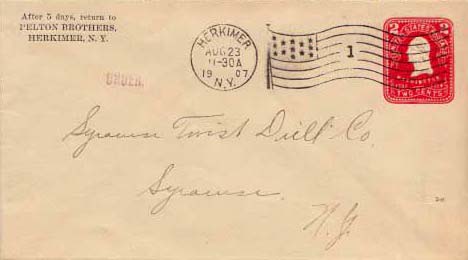 After 5 days, return to
PELTON BROTHERS,
HERKIMER, N. Y.
HERKIMER
AUG 23
11-30A
1907
N.Y.
1
2 2
UNITED STATES POSTAGE
WASHINGTON
TWO CENTS
ORDER.
Syracuse Twist Drill Co.
Syracuse.
N.Y.